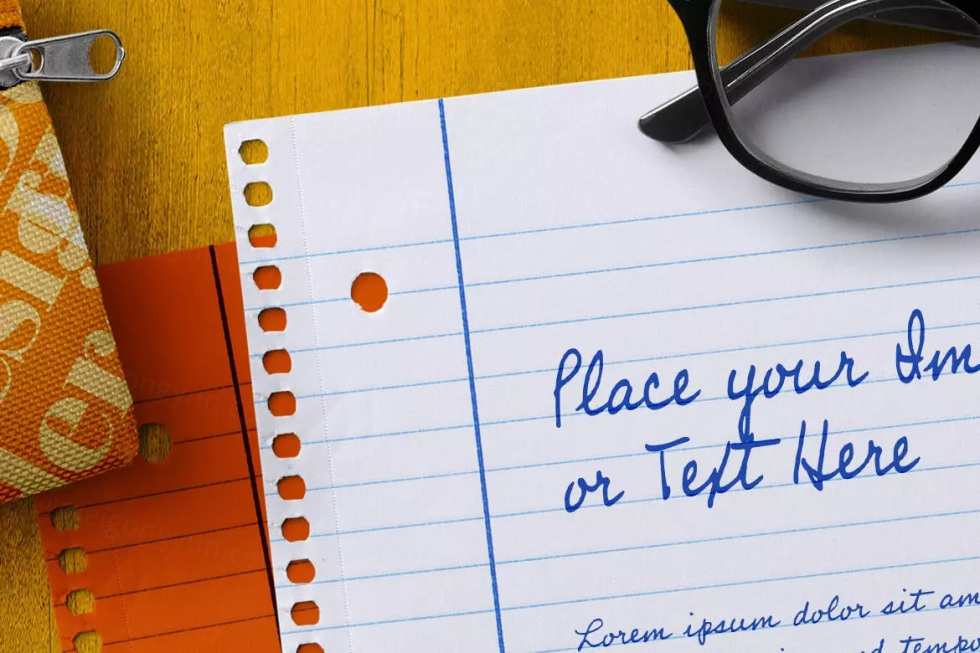 Place your Im
or Text Here
Lorem ipsum dolor sit am